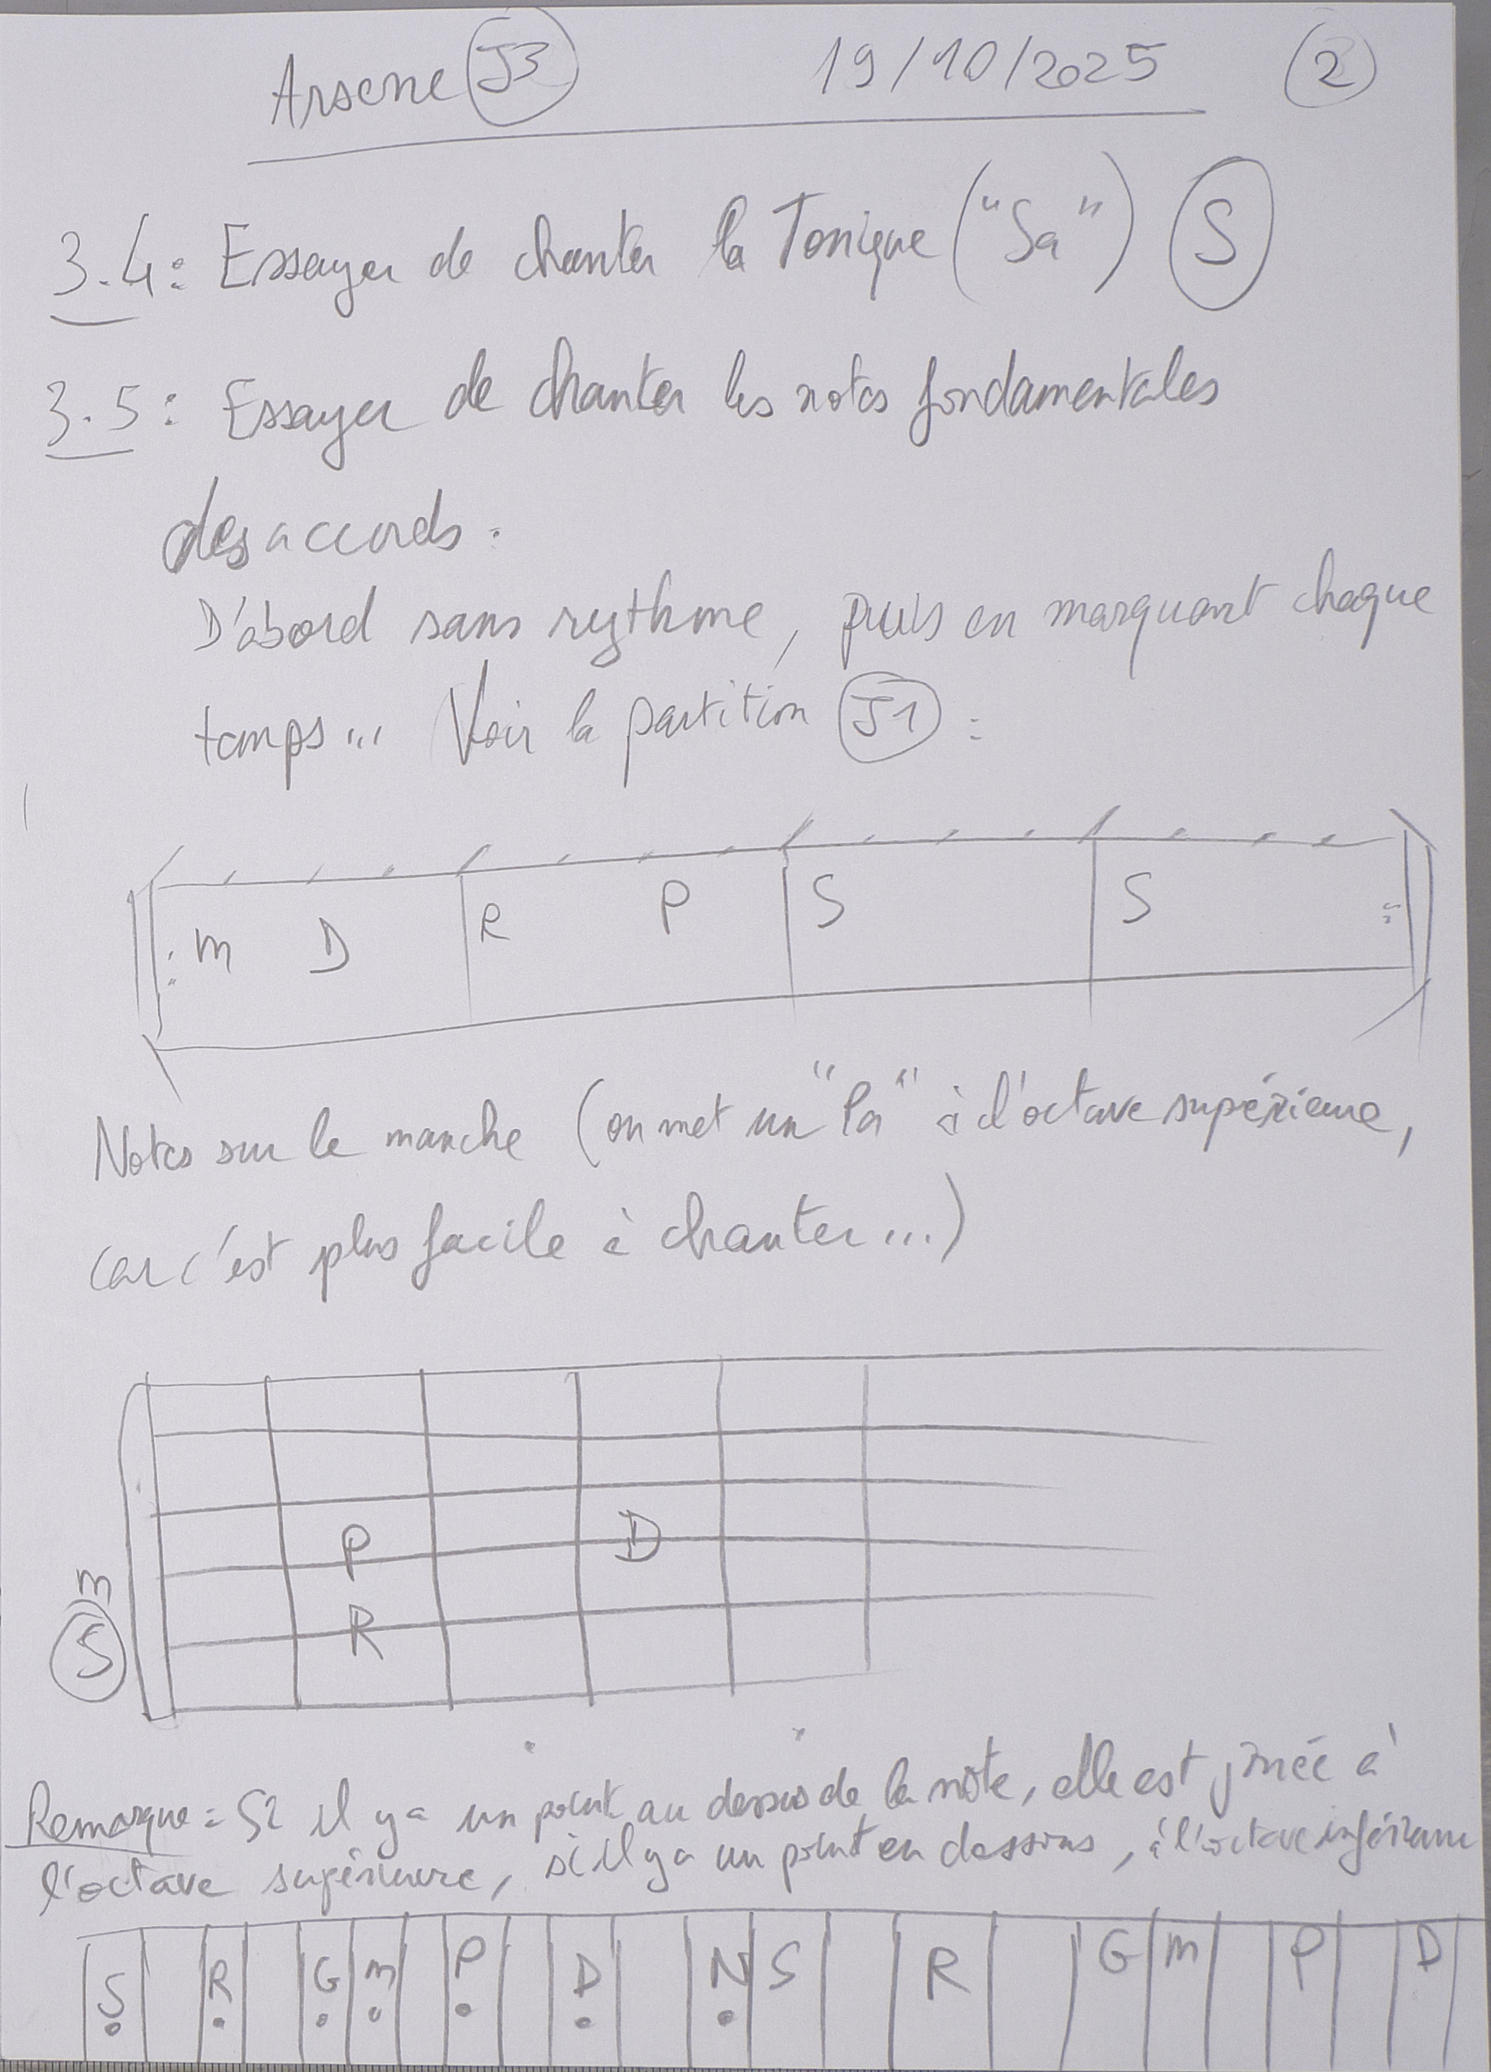 Arsene J3 19/10/2025 2
3.4: Essayer de chanter la Tonique ("Sa") S
3.5: Essayer de chanter les notes fondamentales
des accords.
D'abord sans rythme, puis en marquant chaque
temps... Voir la partition J1 :
: m D R P S S :
Notes sur le manche (on met un "Pa" à l'octave supérieure,
car c'est plus facile à chanter...)
P D
m
S R
Remarque = Si il y a un point au dessus de la note, elle est jouée à
l'octave supérieure, si il y a un point en dessous, à l'octave inférieure
Ṣ Ṛ G̣ ṃ P̣ Ḍ Ṇ S R G m P D